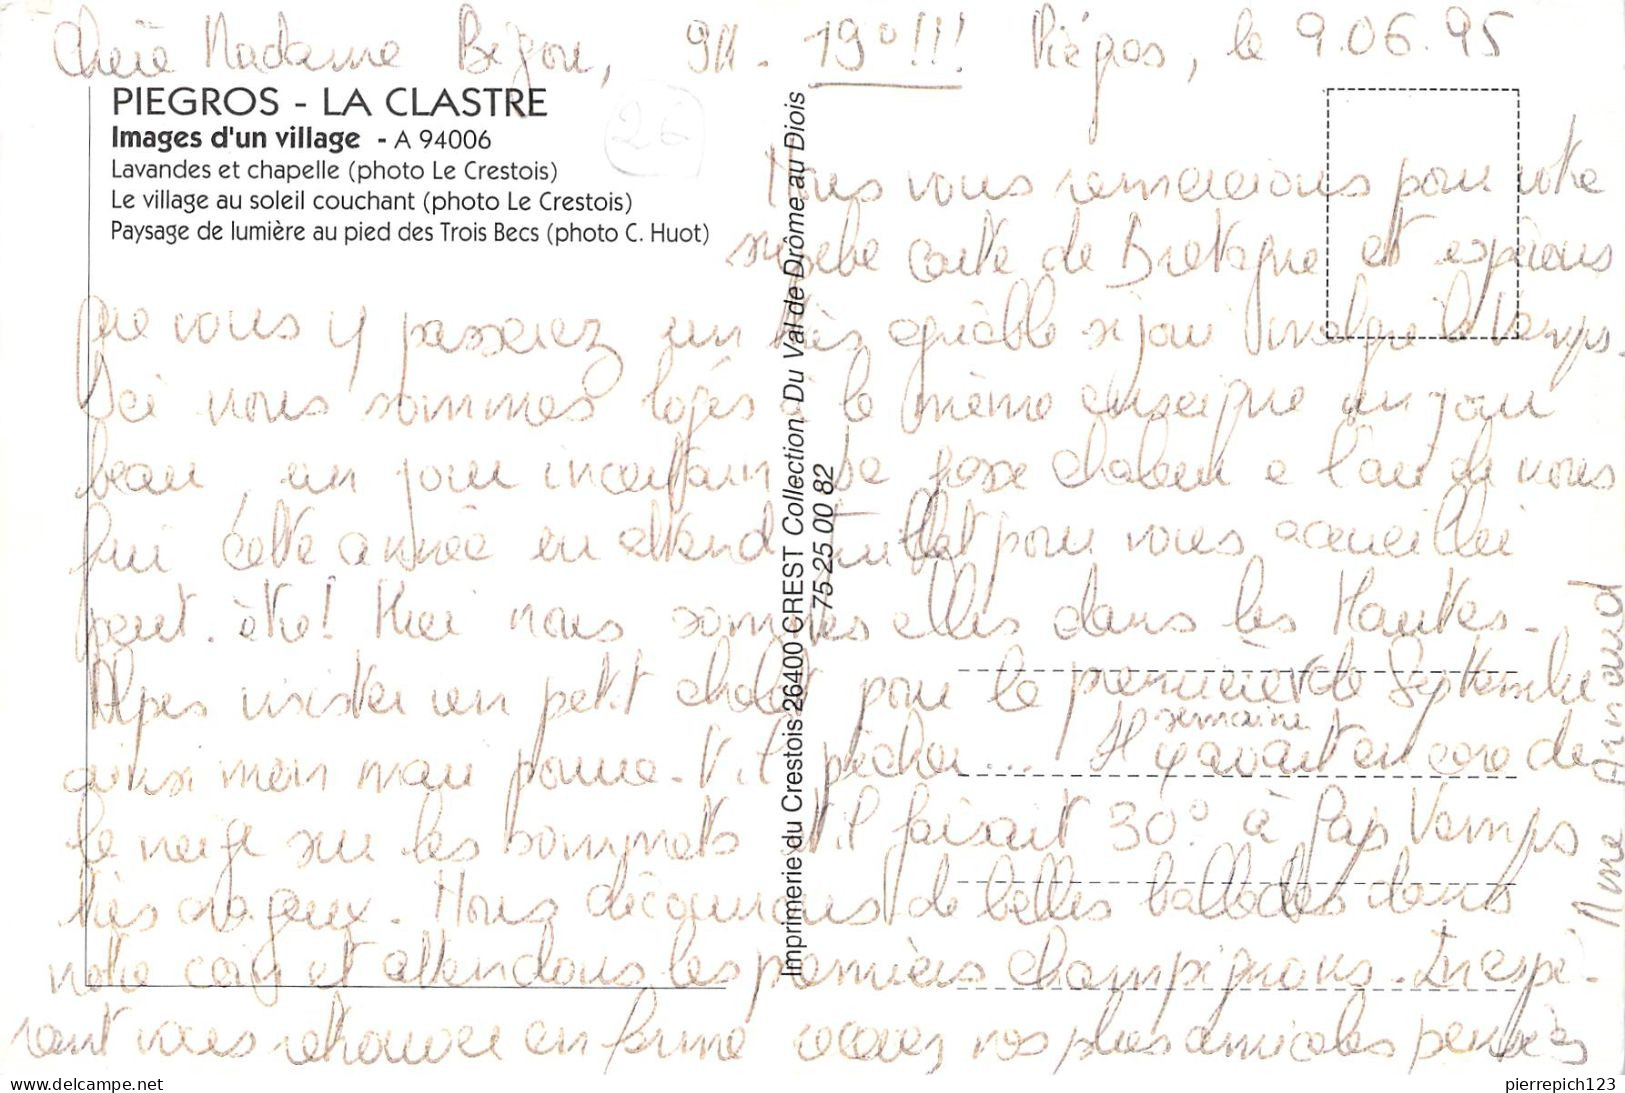 Chère Madame Bejou, 9H. 19°!!! Piégros, le 9.06.95
PIEGROS - LA CLASTRE
Images d'un village - A 94006
Lavandes et chapelle (photo Le Crestois)
Le village au soleil couchant (photo Le Crestois)
Paysage de lumière au pied des Trois Becs (photo C. Huot)
26
Imprimerie du Crestois 26400 CREST Collection Du Val de Drôme au Diois
75 25 00 82
Nous vous remercions pour votre
superbe carte de Bretagne et espérons
que vous y passerez un très agréable séjour malgré le temps.
Ici nous sommes logés à la même enseigne un jour
beau, un jour incertain la grosse chaleur a l'air de nous
fuir cette année en attend Juillet pour vous accueillir
peut-être! Hier nous sommes allés dans les Hautes-
Alpes visiter un petit chalet pour la première semaine de Septembre
ainsi mon mari pourra-t-il pêcher... Il y avait encore de
la neige sur les sommets et il faisait 30° à Gap temps
très orageux. Nous découvrons de belles ballades dans
notre coin et attendons les premiers champignons. Inespé-
rant vous retrouver en forme recevez nos plus amicales pensées
Mme Arnaud
pierrepich123